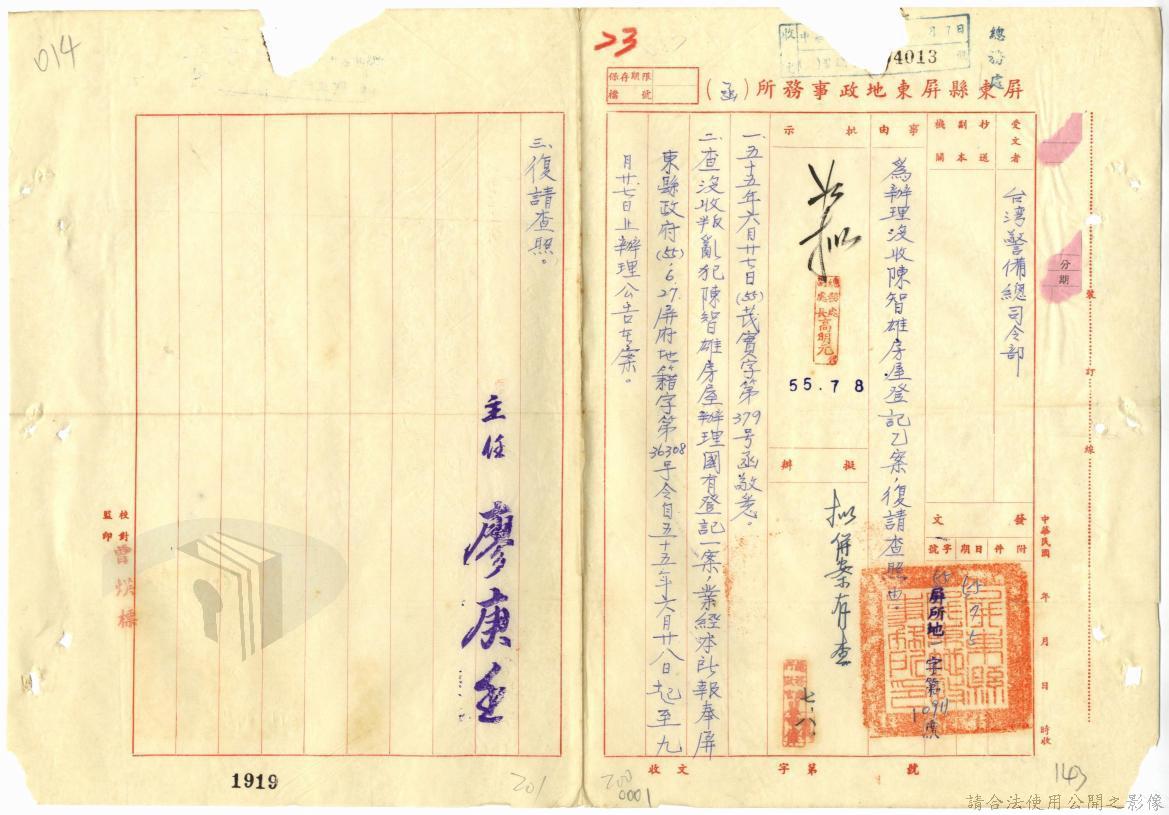 014
23
收
月7日
04013
總務處
保存期限
檔號
屏東縣屏東地政事務所(函)
受文者
台湾警備總司令部
抄送副本機關
發文
附件
日期
字號
55 7 5
55屏所地一字第10911號
事由
為辦理沒收陳智雄房屋登記乙案,復請查照由。
批示
如擬
總務處副處長高明元
55.7 8
擬辦
拟併案存查
七.八
一、五十五年六月廿七日(55)茂實字第379号函敬悉。
二、查沒收叛亂犯陳智雄房屋辦理國有登記一案,業經本所報奉屏
東縣政府(55).6.27.屏府地籍字第36308号令自五十五年六月廿八日起至九
月廿七日止辦理公告在案。
三、復請查照。
主任
監印
校對
收文
字第
號
中華民國 年 月 日 時收
分期
裝訂線
1919
201
200
0001
143
請合法使用公開之影像